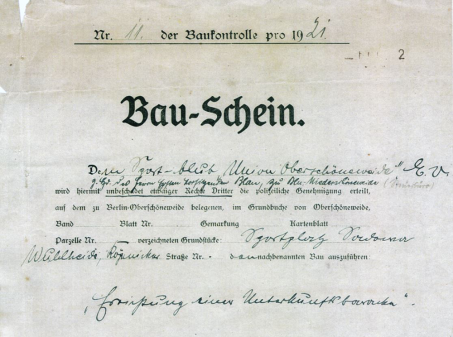 Nr. 11. der Baukontrolle pro 1921.
2
Bau-Schein.
Dem Sport-Club Union Oberschöneweide" E.V.
Herrn Plan, zu Bln-Niederschöneweide
wird hiermit unbeschadet etwaiger Rechte Dritter die polizeiliche Genehmigung erteilt,
auf dem zu Berlin-Oberschöneweide belegenen, im Grundbuche von Oberschöneweide,
Band Blatt Nr. Gemarkung Kartenblatt
Parzelle Nr. verzeichneten Grundstücke: Sportplatz Sadowa
Wuhlheide, Köpenicker Straße Nr. - den nachbenannten Bau auszuführen
„Errichtung einer Unterkunftsbaracke".